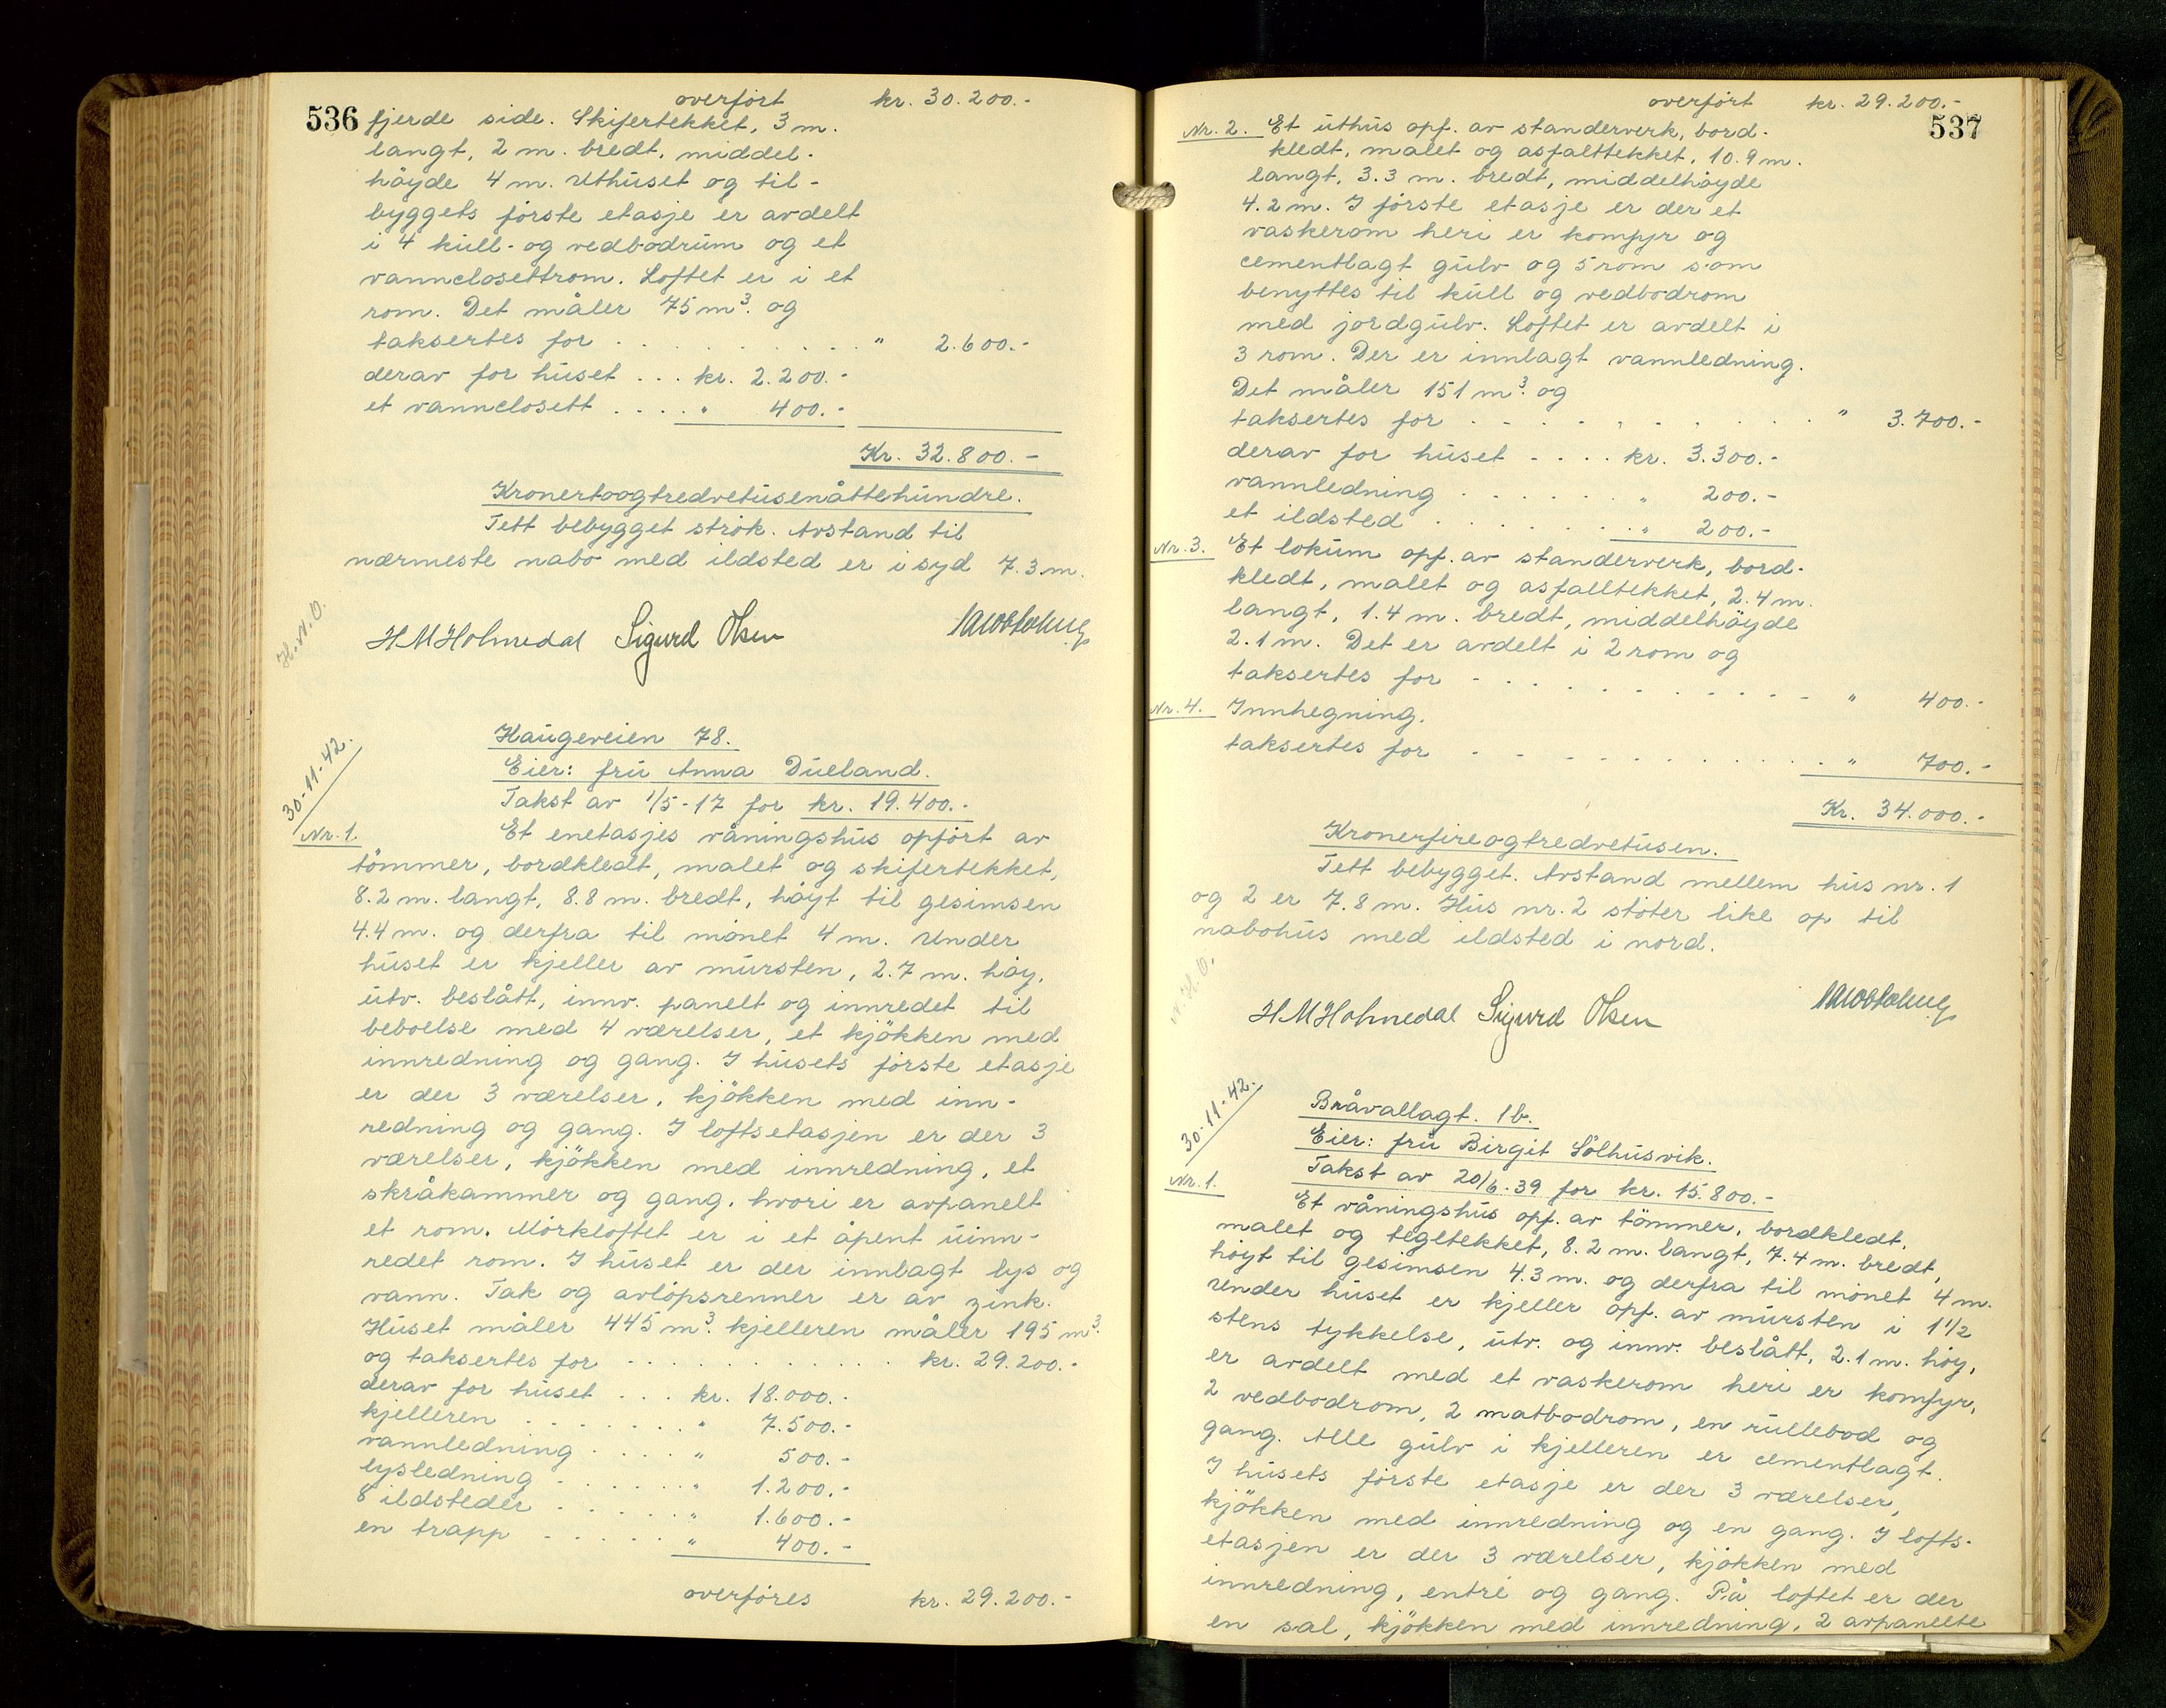 536
overført kr. 30.200.-
fjerde side. Skifertekket, 3 m.
langt, 2 m. bredt, middel-
höyde 4 m. Uthúset og til-
byggets förste etasje er avdelt
i 4 kúll- og vedbodrúm og et
vannclosettrom. Loftet er i et
rom. Det måler 75 m³. og
taksertes for . . . . . . . . . . " 2.600.-
derav for húset . . . kr. 2.200.-
et vannclosett . . . . " 400.-
Kr. 32.800.-
Kronertoogtredvetúsenåttehúndre.
Tett bebygget strök. Avstand til
nærmeste nabo med ildsted er i syd 7.3 m.
H.N.O.
H M Holmedal Sigurd Olsen
30-11-42.
Haúgeveien 78.
Eier: frú Anna Dúeland.
Takst av 1/5-17 for kr. 19.400.-
Nr. 1. Et enetasjes våningshús opfört av
tömmer, bordkledt, malet og skifertekket,
8.2 m. langt, 8.8 m. bredt, höyt til gesimsen
4.4 m. og derfra til mönet 4 m. Under
húset er kjeller av múrsten, 2.7 m. höy,
útv. beslått, innv. panelt og innredet til
beboelse med 4 værelser, et kjökken med
innredning og gang. I húsets förste etasje
er der 3 værelser, kjökken med inn-
redning og gang. I loftsetasjen er der 3
værelser, kjökken med innredning, et
skråkammer og gang, hvori er avpanelt
et rom. Mörkloftet er i et åpent úinn-
redet rom. I húset er der innlagt lys og
vann. Tak og avlöpsrenner er av zink.
Húset måler 445 m³. kjelleren måler 195 m³.
og taksertes for . . . . . . . . . . . kr. 29.200.-
derav for húset . . . kr. 18.000.-
kjelleren . . . . . . . " 7.500.-
vannledning . . . . " 500.-
lysledning . . . . . . " 1.200.-
8 ildsteder . . . . . . " 1.600.-
en trapp . . . . . . " 400.-
overföres kr. 29.200.-
537
overfört kr. 29.200.-
Nr. 2. Et úthús opf. av standerverk, bord-
kledt, malet og asfalttekket, 10.9 m.
langt, 3.3 m. bredt, middelhöyde
4.2 m. I förste etasje er der et
vaskerom heri er komfyr og
cementlagt gúlv og 5 rom som
benyttes til kúll og vedbodrom
med jordgúlv. Loftet er avdelt i
3 rom. Der er innlagt vannledning.
Det måler 151 m³. og
taksertes for . . . . . . . . . . " 3.700.-
derav for húset . . . . kr. 3.300.-
vannledning . . . . . . " 200.-
et ildsted . . . . . . . " 200.-
Nr. 3. Et lokúm opf. av standerverk, bord-
kledt, malet og asfalltekket, 2.4 m.
langt, 1.4 m. bredt, middelhöyde
2.1 m. Det er avdelt i 2 rom og
taksertes for . . . . . . . . . . . " 400.-
Nr. 4. Innhegning.
taksertes for . . . . . . . . . . . " 700.-
Kr. 34.000.-
Kronerfireogtredvetúsen.
Tett bebygget. Avstand mellem hús nr. 1
og 2 er 7.8 m. Hús nr. 2 stöter like op til
nabohús med ildsted i nord.
H M Holmedal Sigurd Olsen
30-11-42.
Bråvallagt. 1b.
Eier: frú Birgit Sólhúsvik.
Takst av 20/6-39 for kr. 15.800.-
Nr. 1. Et våningshús opf. av tömmer, bordkledt,
malet og tegltekket, 8.2 m. langt, 7.4 m. bredt,
höyt til gesimsen 4.3 m. og derfra til mönet 4 m.
Under húset er kjeller opf. av múrsten i 1 1/2
stens tykkelse, útv. og innv. beslått, 2.1 m. höy,
er avdelt med et vaskerom heri er komfyr,
2 vedbodrom, 2 matbodrom, en rúllebod og
gang. Alle gúlv i kjelleren er cementlagt.
I húsets förste etasje er der 3 værelser,
kjökken med innredning og en gang. I lofts-
etasjen er der 3 værelser, kjökken med
innredning, entré og gang. På loftet er der
en sal, kjökken med innredning, 2 avpanelte